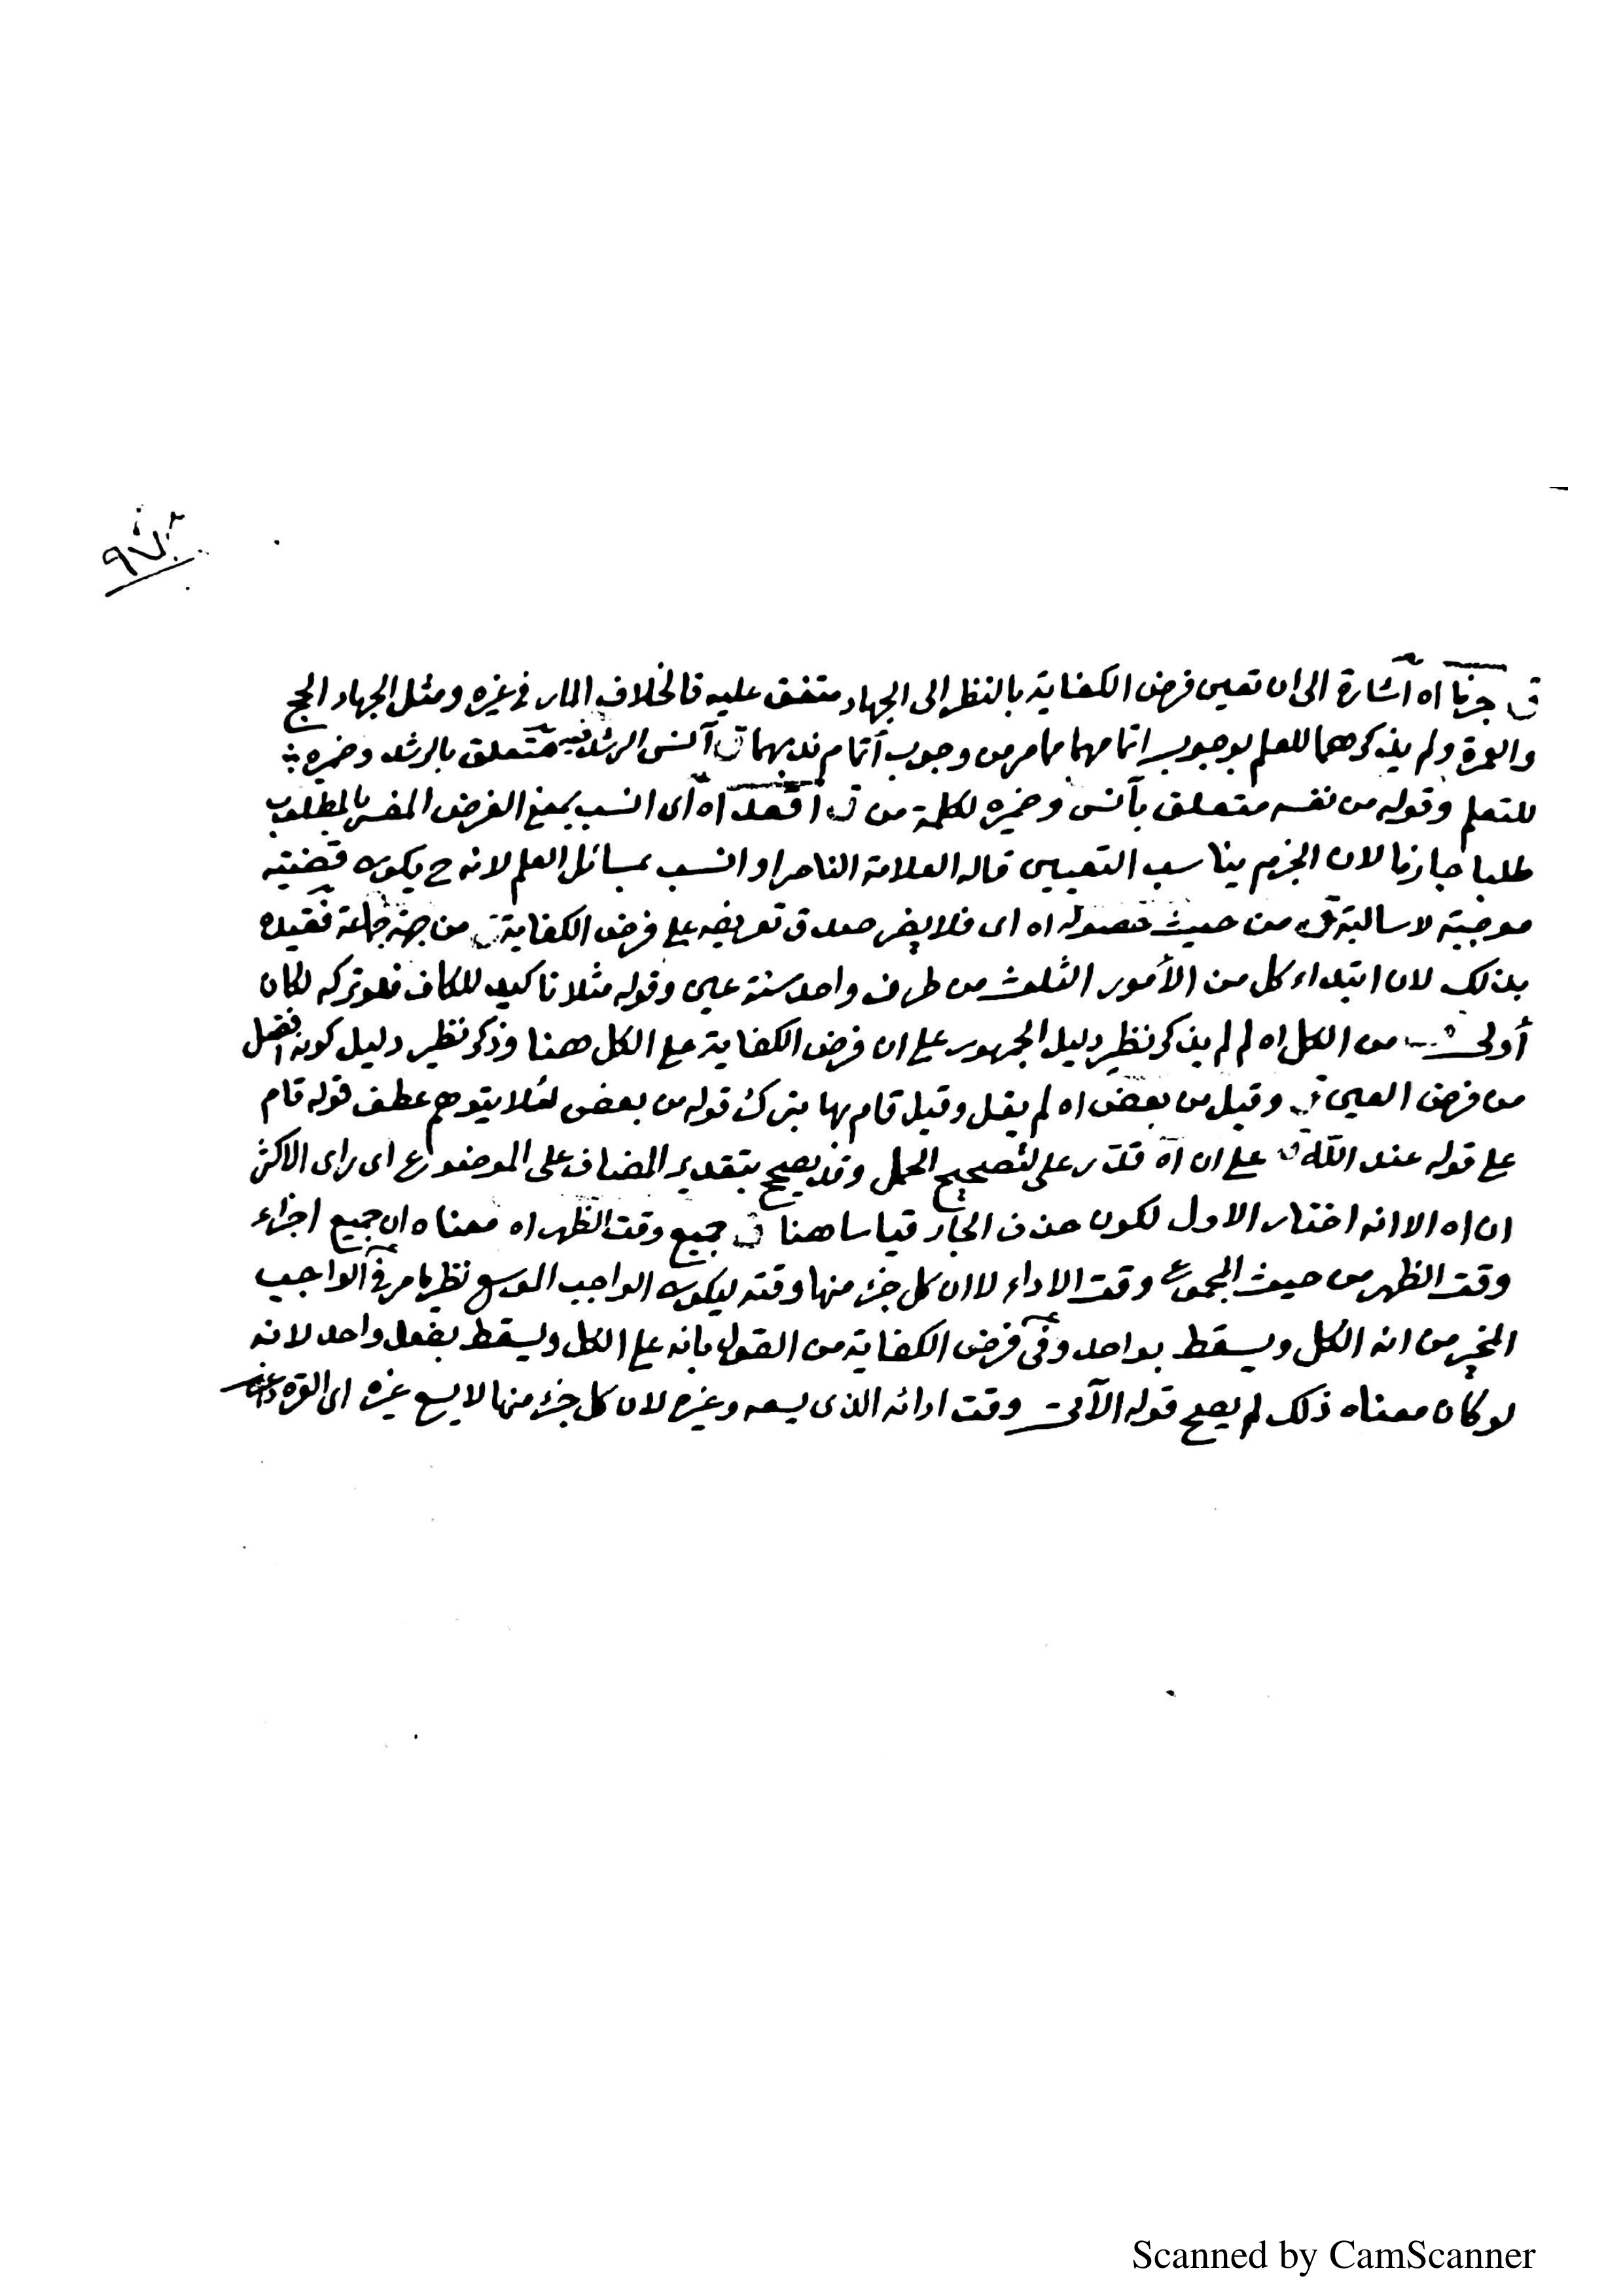 ٩٧
ق جزما اه اشارة الى ان تعين فرض الكفاية بالنظر الى الجهاد متفق عليه فالخلاف المار في غيره ومثل الجهاد الحج
والعمرة ولم يذكرهما للعلم بوجوب اتمامهما مما مر من وجوب اتمام ندبهما ق آنس الرشد فيه متعلق بالرشد وضميره
للتعلم وقوله من نفسه متعلق بآنس وضميره لكلمة من ق اقعد اه اى انسب بمعنى الفرض المفسر بالمطلوب
طلبا جازما لان الجزم يناسب التعيين قاله العلامة الناصر او انسب بمسائل العلم لانه ح يكون قضيته
موجبة لا سالبة ق من حيث حصوله اه اى فلا يضر صدق تعريفه على فرض الكفاية ق من جهة جماعة فقيده
بذلك لان ابتداء كل من الأمور الثلث من طرف واحد سنة عين وقوله مثلا تاكيد للكاف فلو تركه لكان
أولى من الكل اه لم لم يذكر نظير دليل الجمهور على ان فرض الكفاية على الكل ههنا وذكر نظير دليل كونه افضل
من فرض العين ق وقيل من بعض اه لم يقل وقيل قام بها بترك قوله من بعض لئلا يتوهم عطف قوله قام
على قوله عند الله ق على ان اه قدر على لتصحيح الحمل وقد يصح بتقدير المضاف على الموضوع اى راى الاكثر
ان اه الا انه اختار الاول لكون حذف الجار قياسا هنا ق جميع وقت الظهر اه معناه ان جميع اجزاء
وقت الظهر من حيث المجموع وقت الاداء لا ان كل جزء منها وقته ليكون الواجب الموسع نظير ما مر في الواجب
المخير من انه الكل ويسقط بواحد وفى فرض الكفاية من القول بانه على الكل ويسقط بفعل واحد لانه
لو كان معناه ذلك لم يصح قوله الآتى وقت ادائه الذى يسعه وغيره لان كل جزء منها لا يسع غيره اى القره داغى
Scanned by CamScanner